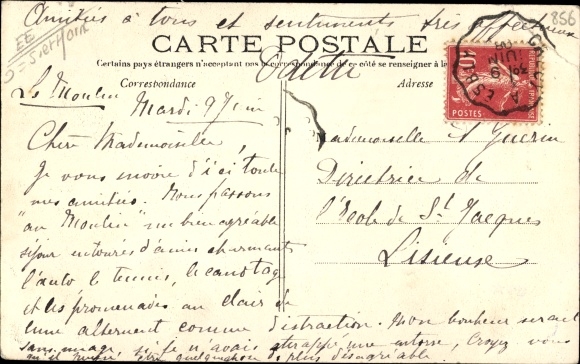 Amitiés à tous et sentiments très affectueux
Odette
856
EE
= S.et HOIR
CARTE POSTALE
Certains pays étrangers n'acceptant pas de correspondance de ce côté se renseigner à la
Correspondance
Adresse
10
POSTES
Le Moulin
Mardi 9 Juin
Chère Mademoiselle,
Je vous envoie d'ici toute
mes amitiés. Nous passons
"au Moulin" un bien agréable
séjour entourés d'amis charmants
l'auto le tennis, le canotage
et les promenades au clair de
lune alternent comme distraction. Mon bonheur serait
sans nuage, si je n'avais attrappé une entorse, croyez vous
quelquechose de plus désagréable
Mademoiselle Guérin
Directrice de
l'Ecole de St Jacques
Lisieux